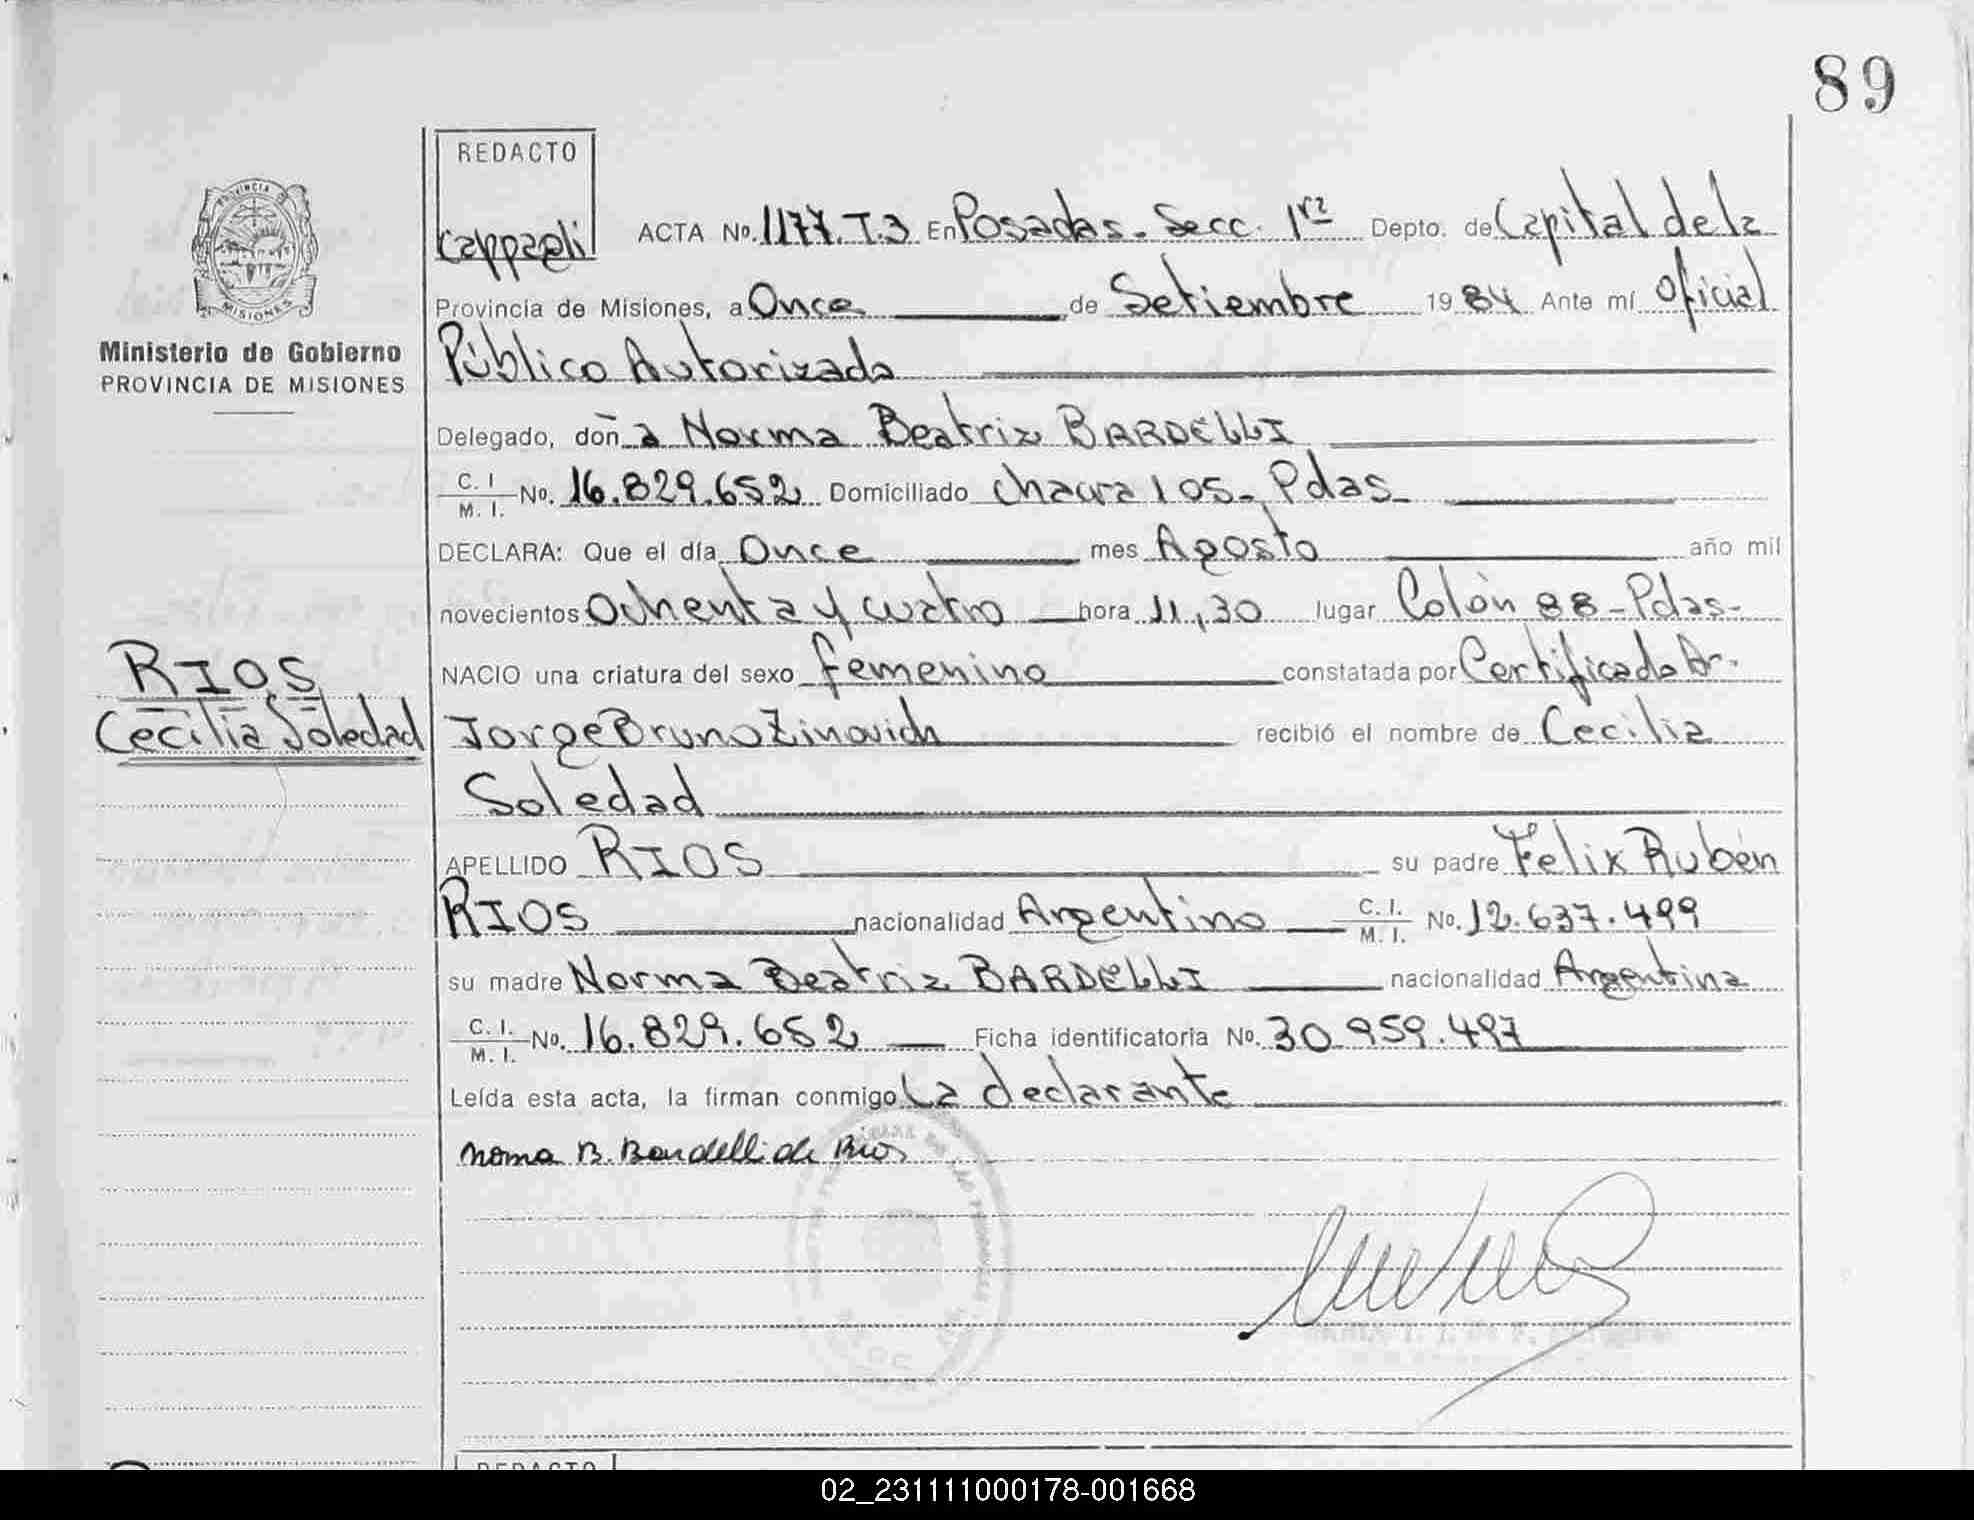 89
REDACTO
Cappagli
PROVINCIA DE
MISIONES
Ministerio de Gobierno
PROVINCIA DE MISIONES
RIOS
Cecilia Soledad
ACTA No. 1177. T.3 En Posadas. Secc. 1ra Depto. de Capital de la
Provincia de Misiones, a Once de Setiembre 1984 Ante mí Oficial
Público Autorizado
Delegado, don a Norma Beatriz BARDELLI
C. I. M. I. No. 16.829.652 Domiciliado Chacra 105- Pdas-
DECLARA: Que el día Once mes Agosto año mil
novecientos Ochenta y cuatro hora 11,30 lugar Colón 88-Pdas-
NACIO una criatura del sexo femenino constatada por Certificado Dr.
Jorge Bruno Zinovich recibió el nombre de Cecilia
Soledad
APELLIDO RIOS su padre Felix Rubén
RIOS nacionalidad Argentino C. I. M. I. No. 12.637.499
su madre Norma Beatriz BARDELLI nacionalidad Argentina
C. I. M. I. No. 16.829.652 Ficha identificatoria No. 30.959.497
Leída esta acta, la firman conmigo La declarante
Norma B. Bardelli de Rios
REDACTO
02_231111000178-001668